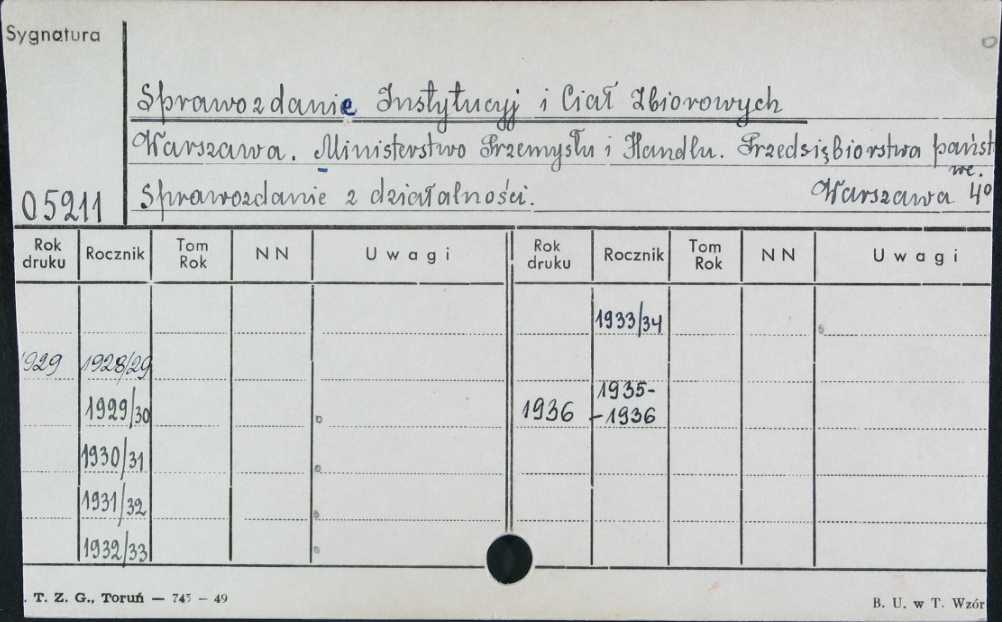 Sygnatura
Sprawozdanie Instytucyj i Ciał Zbiorowych
Warszawa. Ministerstwo Przemysłu i Handlu. Przedsiębiorstwa państ
we.
05211 Sprawozdanie z działalności. Warszawa 4°
Rok druku Rocznik Tom Rok NN Uwagi Rok druku Rocznik Tom Rok NN Uwagi
1933/34
1929 1928/29
1929/30 1936 1935-
-1936
1930/31
1931/32
1932/33
. T. Z. G., Toruń — 745 — 49 B. U. w T. Wzór